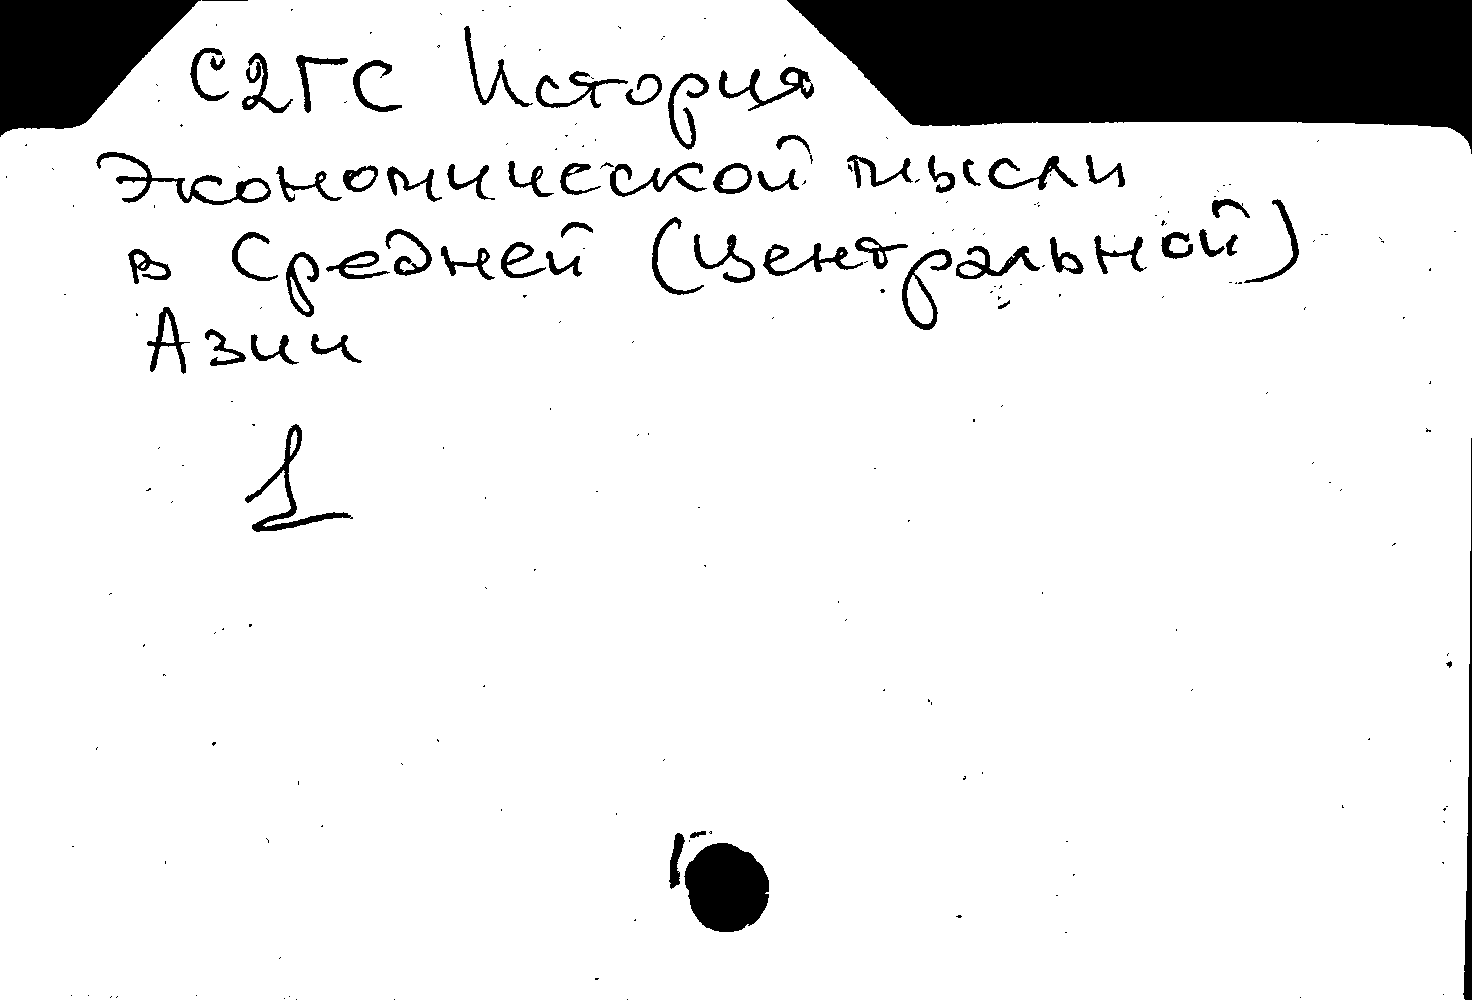 С2ГС История
экономической мысли
в Средней (Центральной)
Азии
1